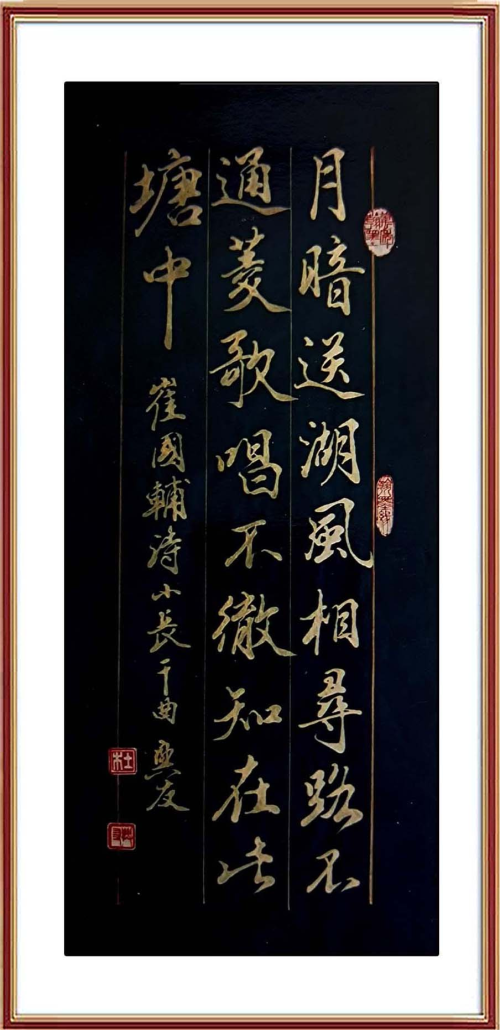 月暗送湖風相尋路不
通菱歌唱不徹知在此
塘中
崔國輔詩小長干曲 友
杜